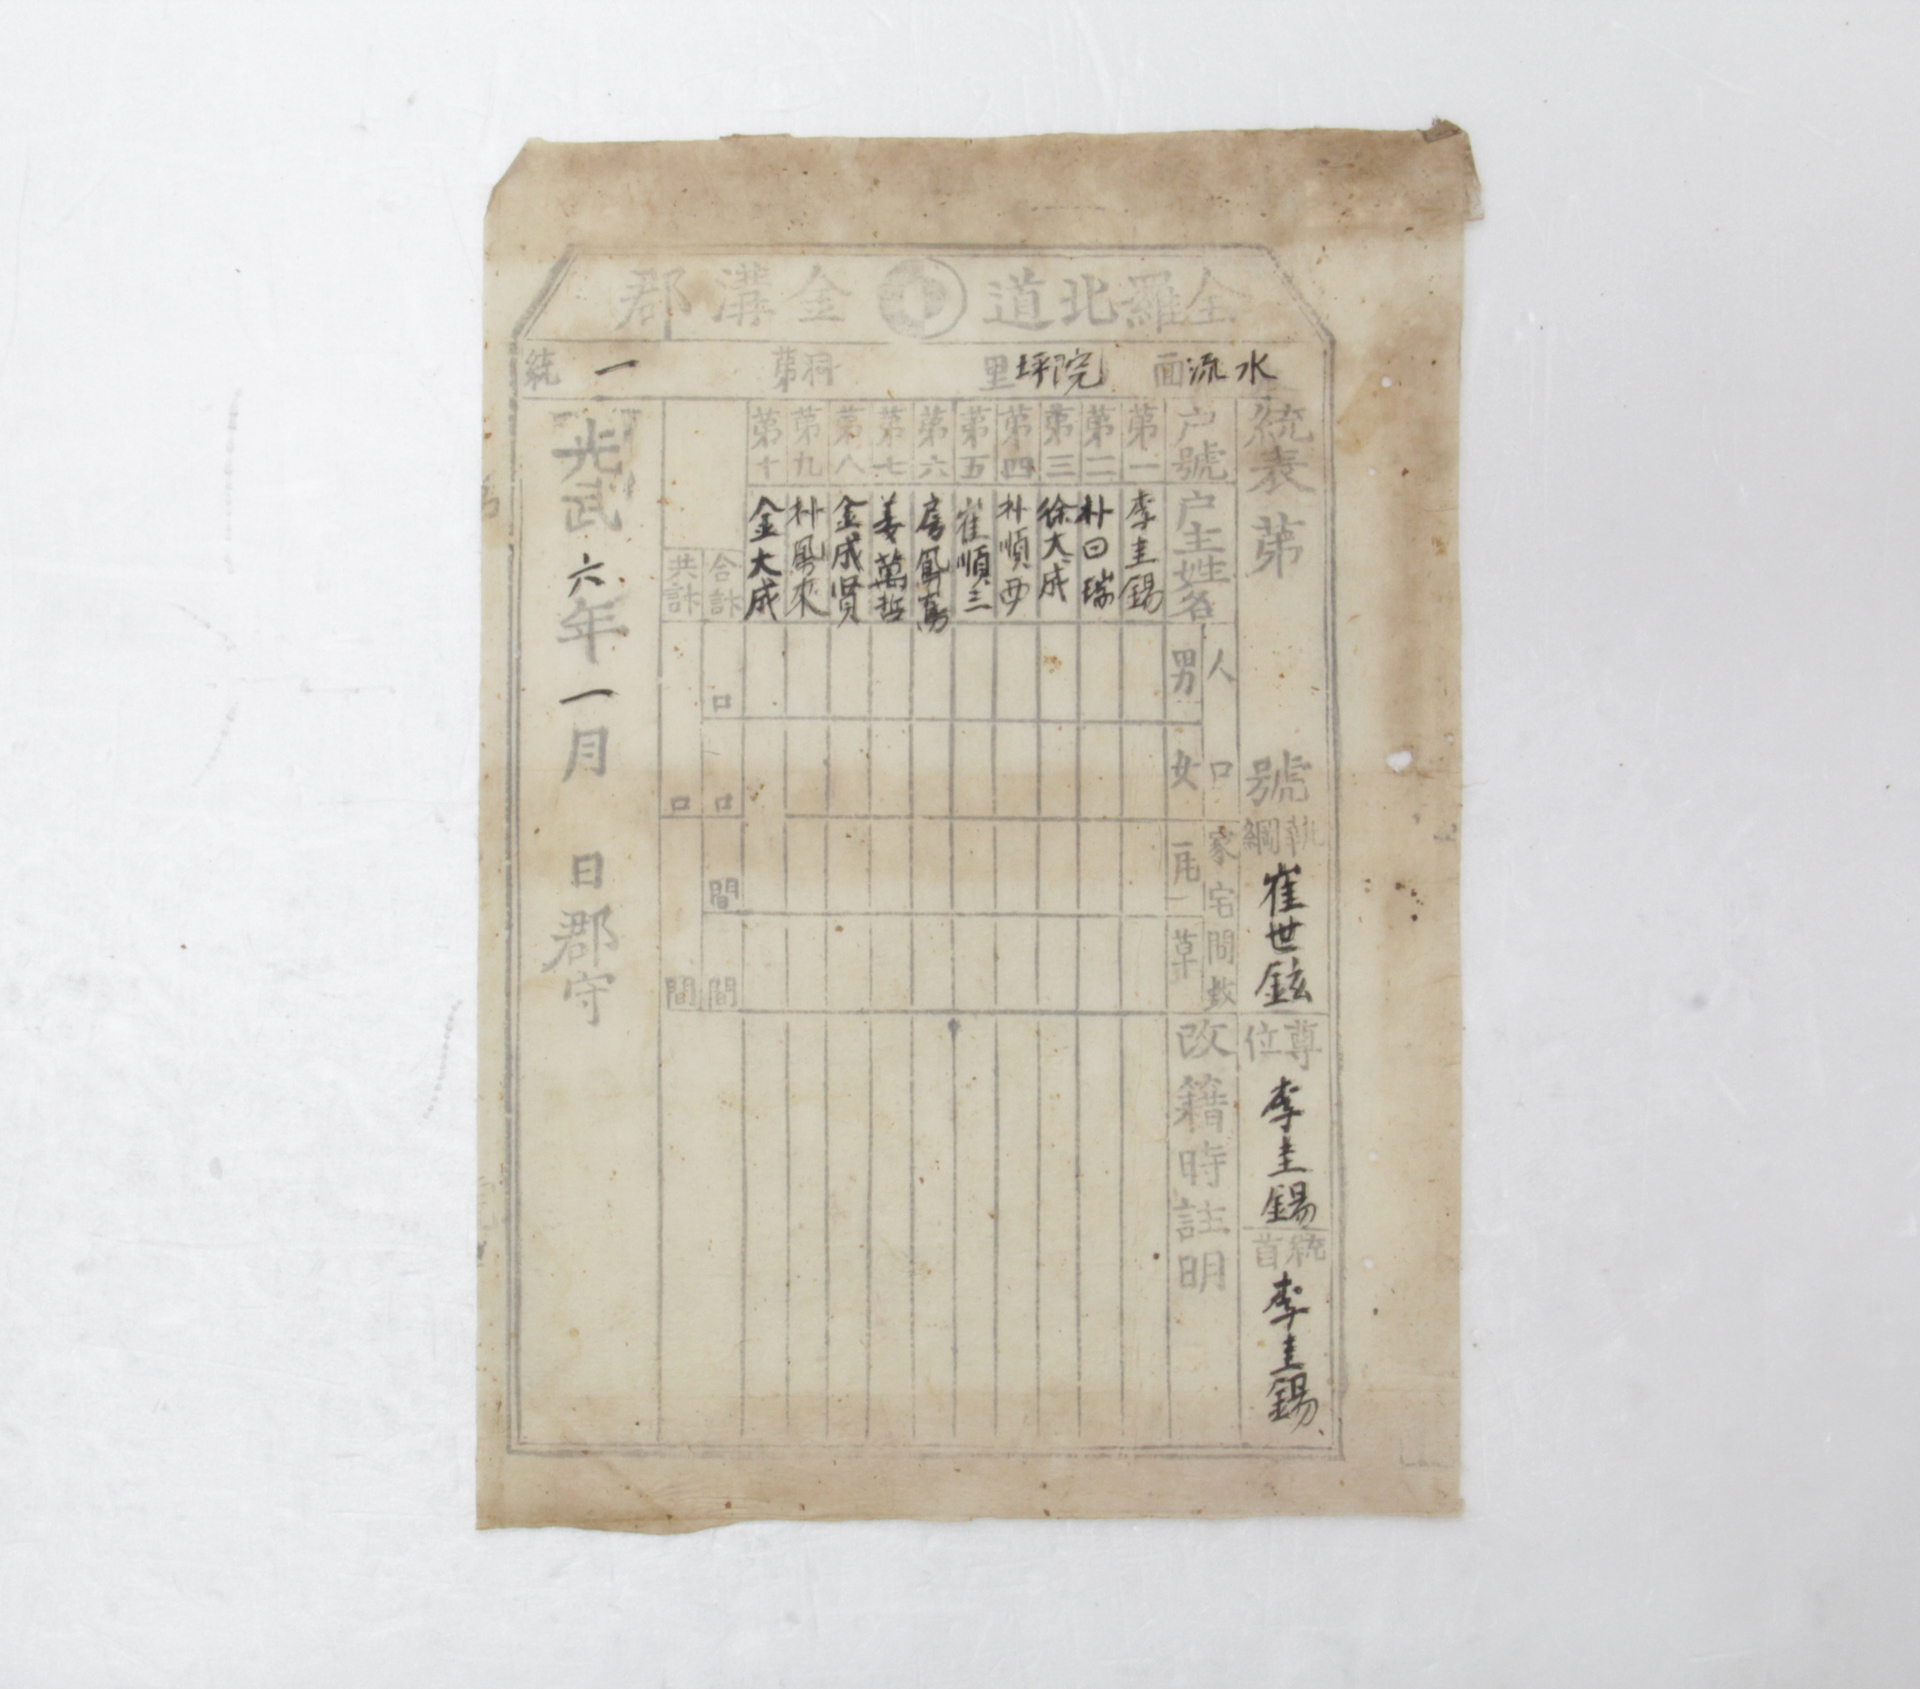 全羅北道 金溝郡
水流面 院坪里 洞第一統
統表第 號
執綱 崔世鉉
尊位 李圭錫
統首 李圭錫
戶號 戶主姓名 人口 男 女 家宅間數 瓦 草 改籍時註明
第一 李圭錫
第二 朴曰瑞
第三 徐大成
第四 朴順西
第五 崔順三
第六 房鳳萬
第七 姜萬哲
第八 金成賢
第九 朴鳳來
第十 金大成
合計 口 口 間 間
共計 口 間
光武六年一月 日郡守